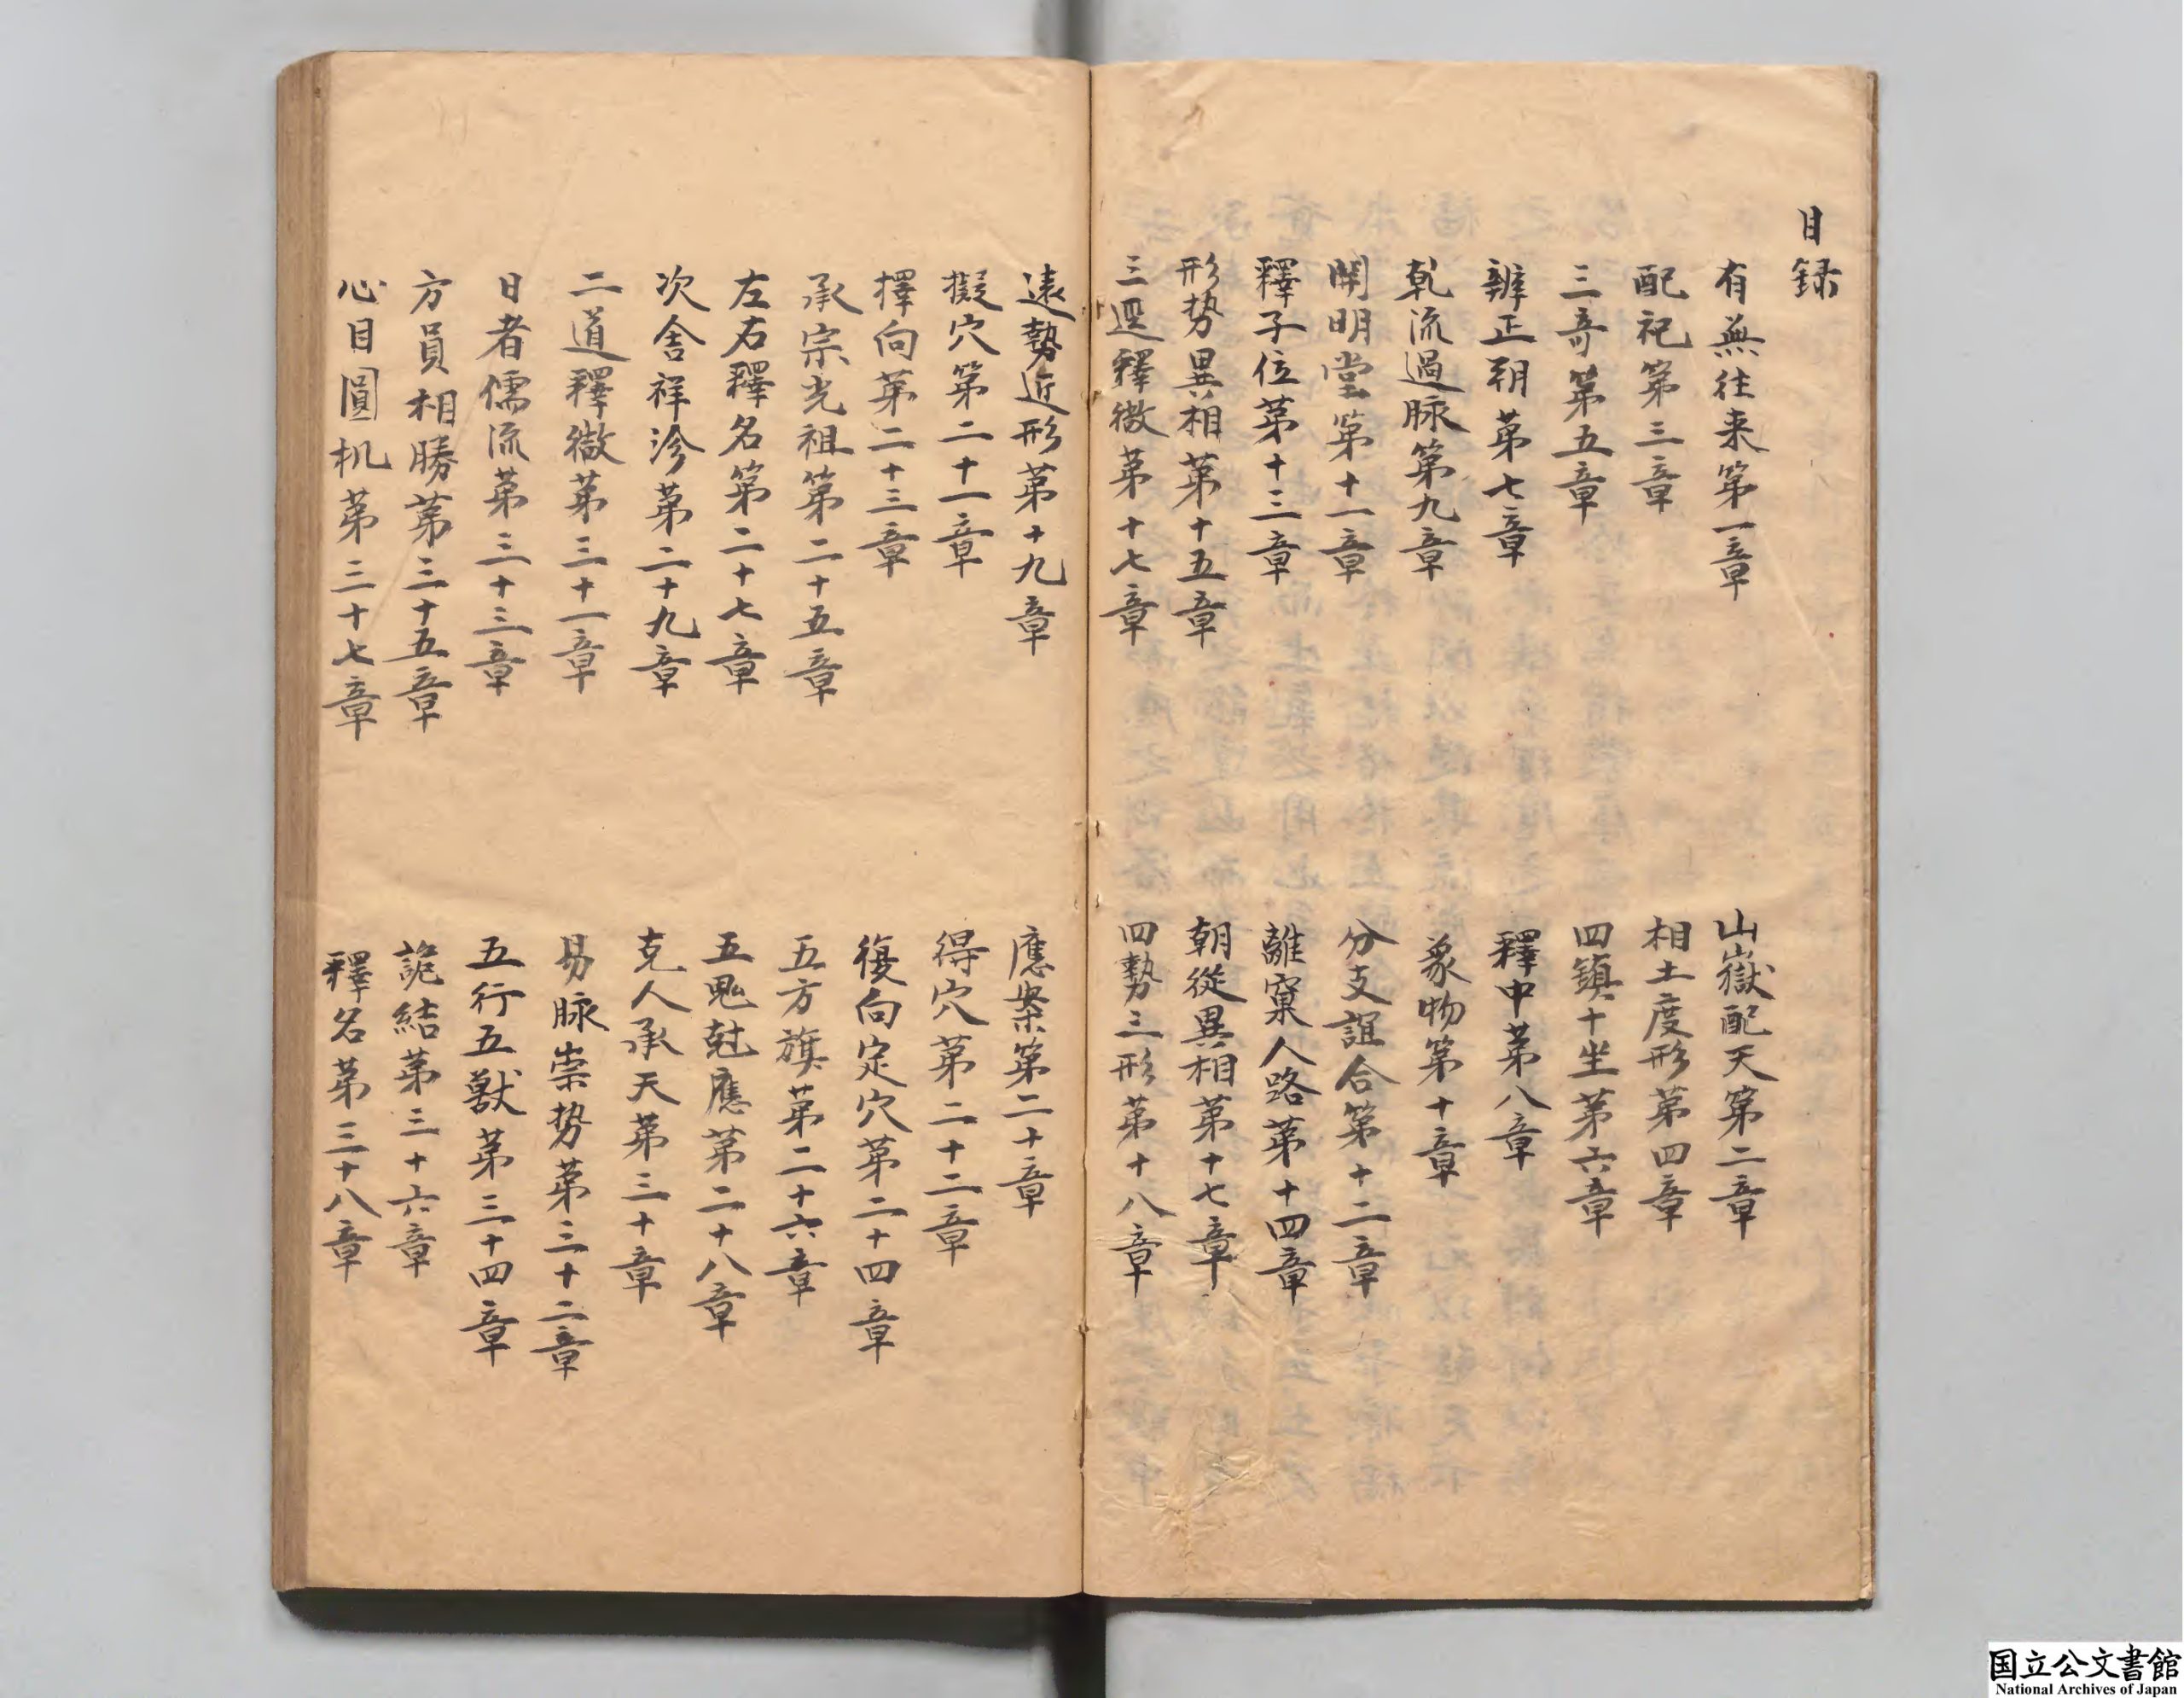 目録
有無往来第一章
山嶽配天第二章
配祀第三章
相土度形第四章
三奇第五章
四鎮十坐第六章
辧正朔第七章
釋中第八章
乹流過脉第九章
象物第十章
開明堂第十一章
分支誼合第十二章
釋子位第十三章
離窠人路第十四章
形势異相第十五章
朝從異相第十七章
三逕釋微第十七章
四勢三形第十八章
遠勢近形第十九章
應案第二十章
擬穴第二十一章
得穴第二十二章
擇向第二十三章
復向定穴第二十四章
承宗光祖第二十五章
五方旗第二十六章
左右釋名第二十七章
五鬼尅應第二十八章
次舍祥沴第二十九章
克人承天第三十章
二道釋微第三十一章
易脉崇势第三十二章
日者儒流第三十三章
五行五獣第三十四章
方員相勝第三十五章
詭結第三十六章
心目圓机第三十七章
釋名第三十八章
国立公文書館
National Archives of Japan